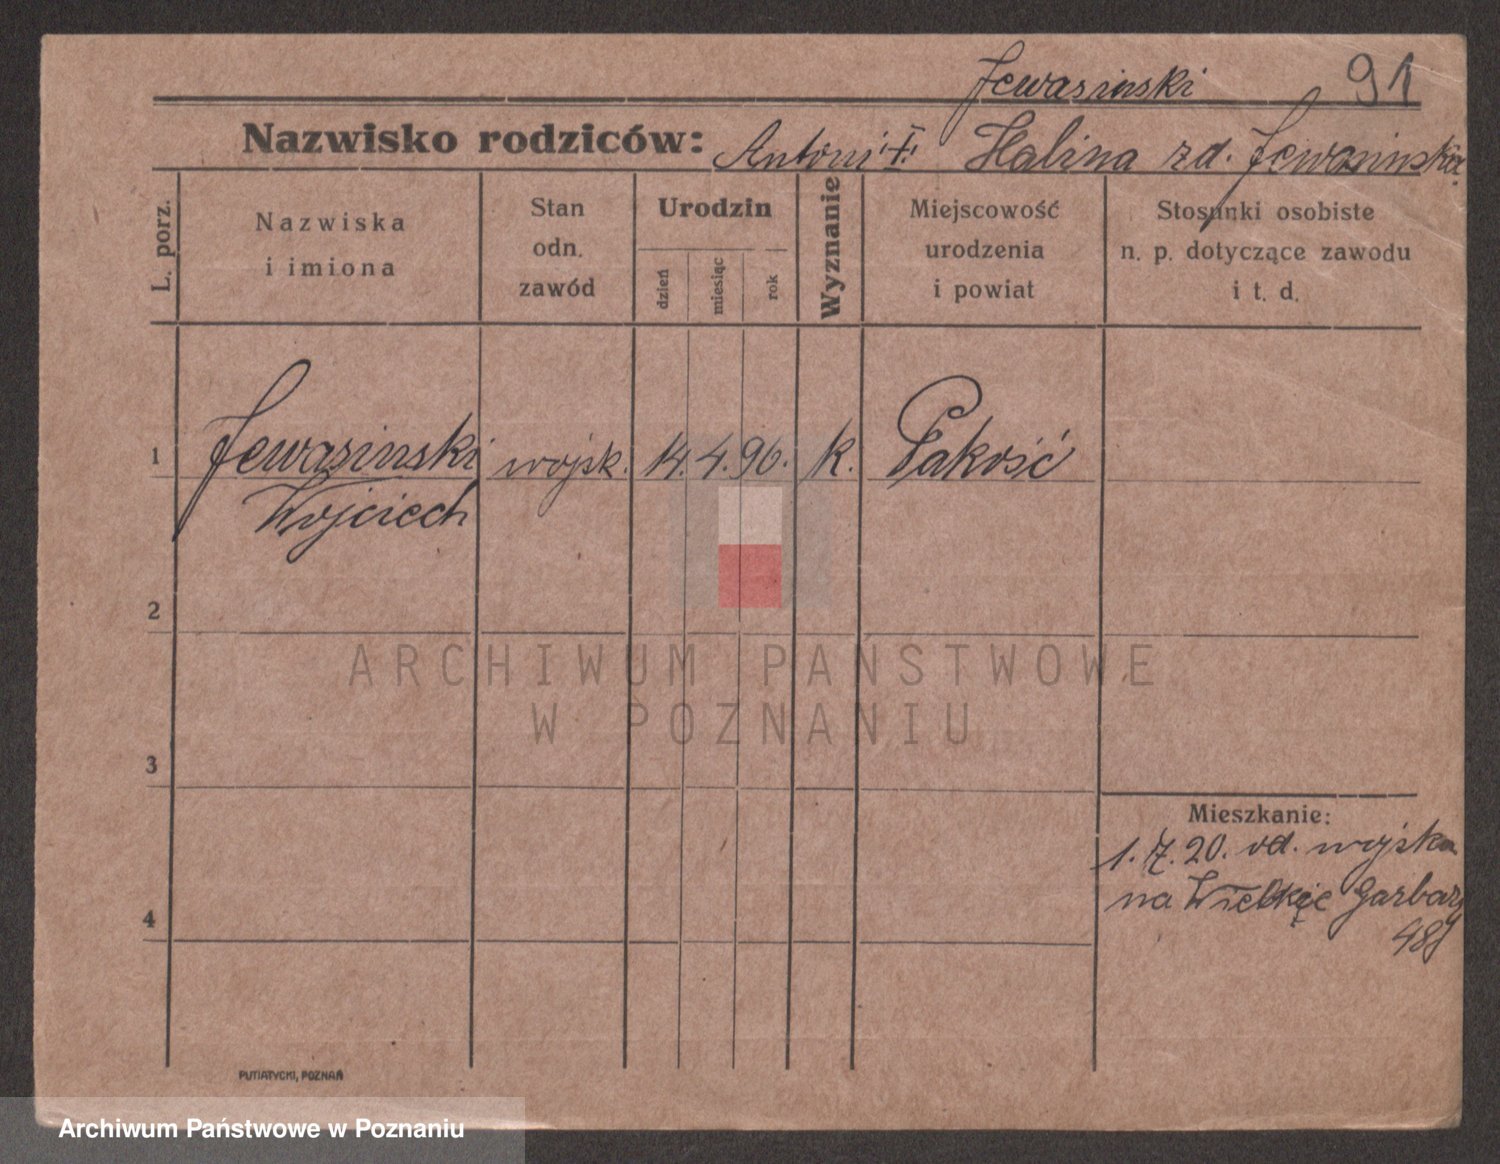 Jewasinski 91
Nazwisko rodziców: Antoni †. Halina zd. Jewasinska
L. porz.
Nazwiska
i imiona
Stan
odn.
zawód
Urodzin
dzień
miesiąc
rok
Wyznanie
Miejscowość
urodzenia
i powiat
Stosunki osobiste
n. p. dotyczące zawodu
i t. d.
1 Jewasinski wojsk. 14. 4. 96. k. Pakość
Wojciech
2
ARCHIWUM PAŃSTWOWE
W POZNANIU
3
Mieszkanie:
1. 7. 20. od. wojska
na Wielkie Garbary
48
4
PUTIATYCKI, POZNAŃ
Archiwum Państwowe w Poznaniu